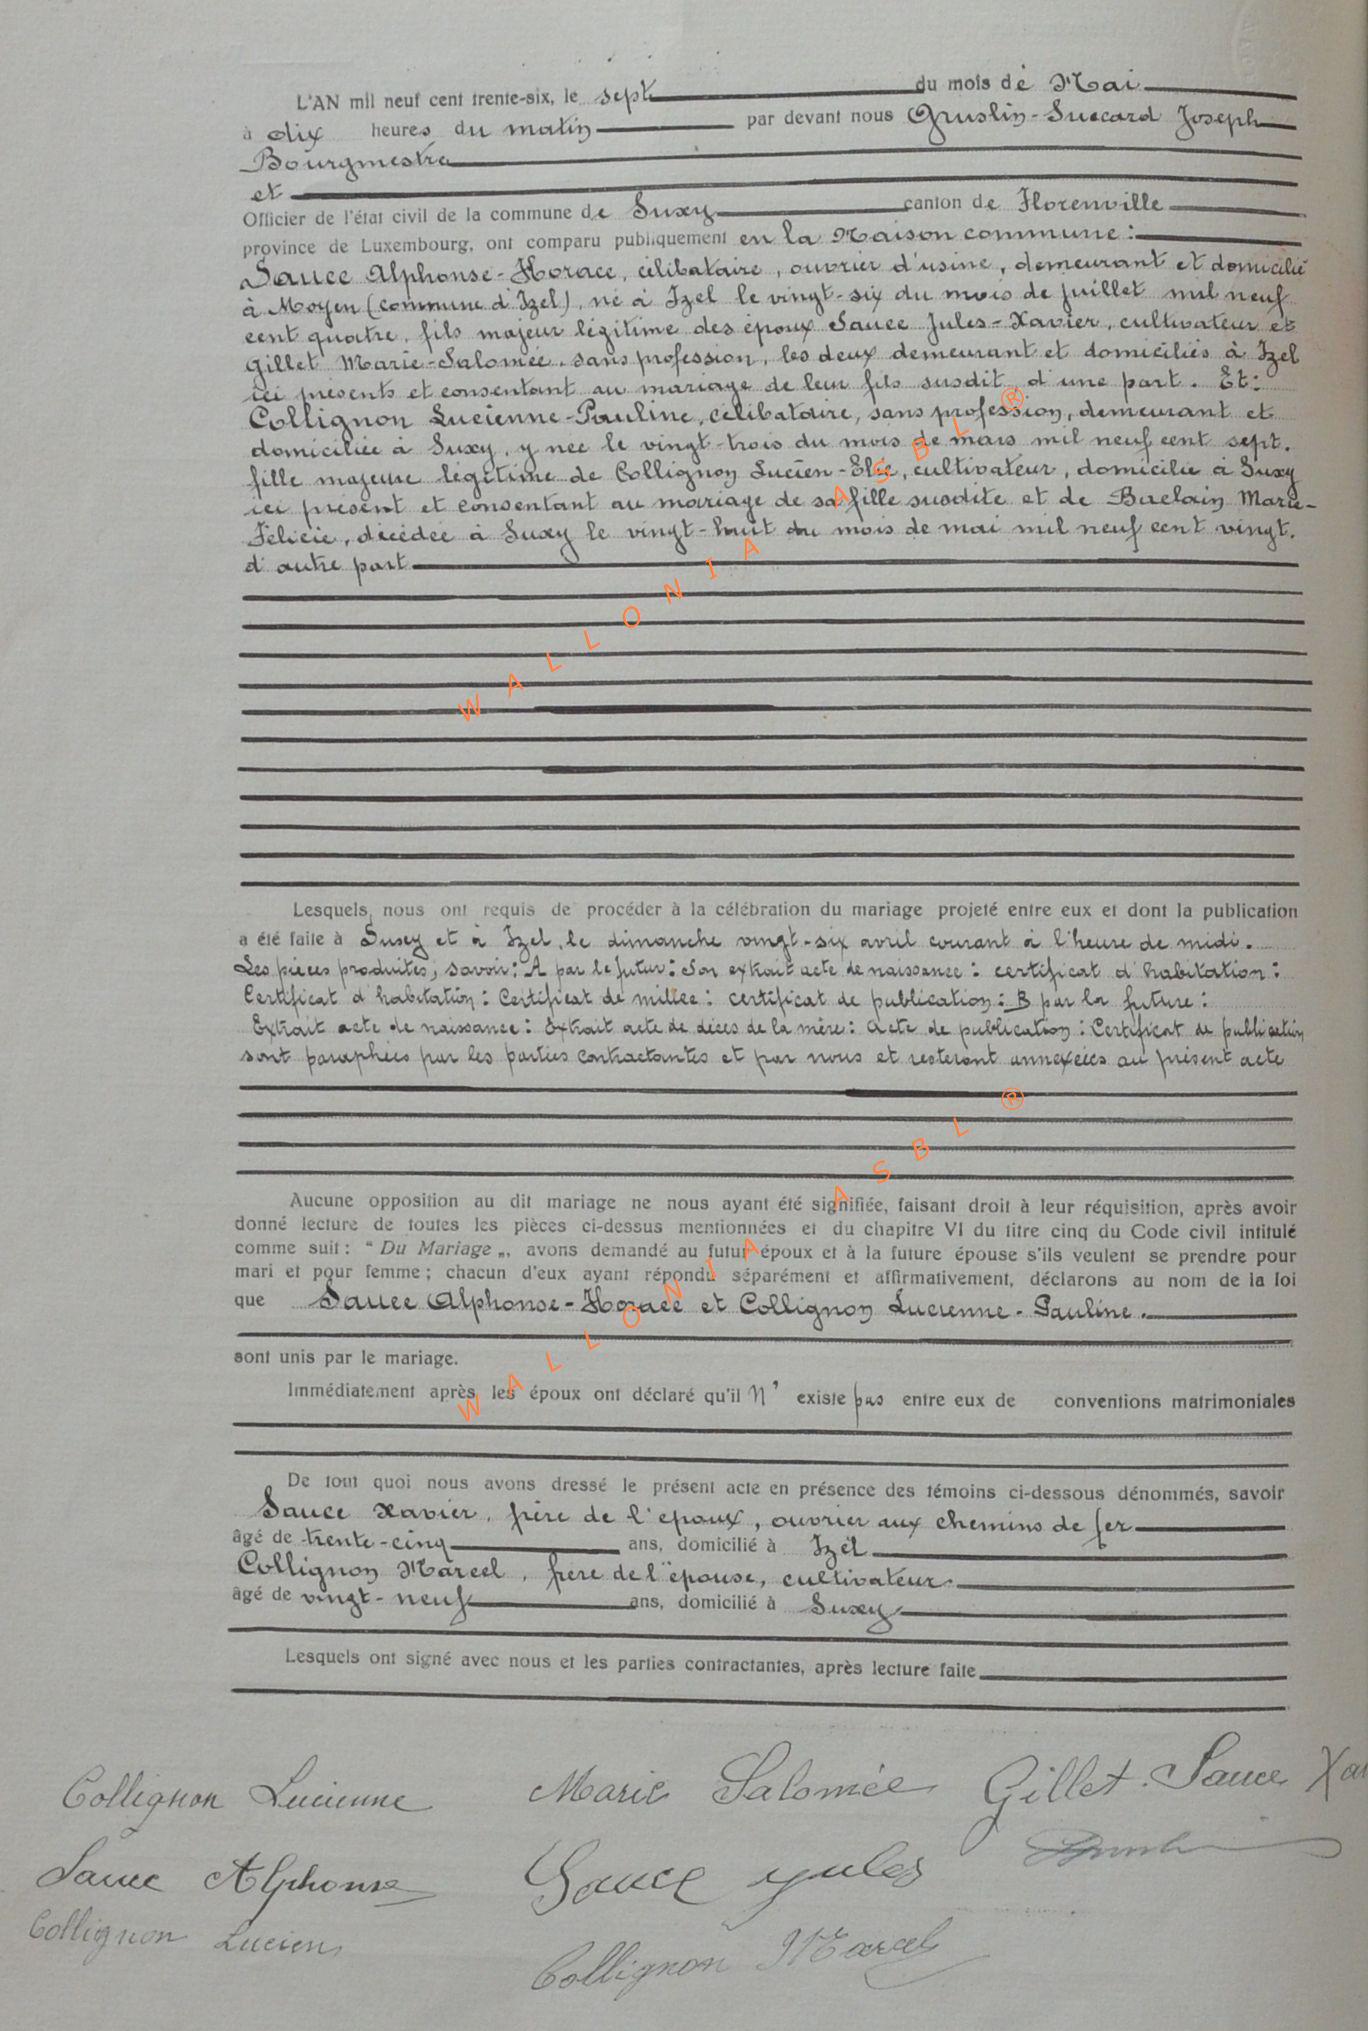 L'AN mil neuf cent trente-six, le sept du mois de Mai
à dix heures du matin par devant nous Gruslin-Suscard Joseph
Bourgmestre
et
Officier de l'état civil de la commune de Suxy canton de Florenville
province de Luxembourg, ont comparu publiquement en la Maison commune :
Sauce Alphonse-Horace, célibataire, ouvrier d'usine, demeurant et domicilié
à Moyen (commune d'Izel), né à Izel le vingt-six du mois de juillet mil neuf
cent quatre, fils majeur légitime des époux Sauce Jules-Xavier, cultivateur et
Gillet Marie-Salomée, sans profession, les deux demeurant et domiciliés à Izel
ici présents et consentant au mariage de leur fils susdit d'une part. Et :
Collignon Lucienne-Pauline, célibataire, sans profession, demeurant et
domiciliée à Suxy, y née le vingt-trois du mois de mars mil neuf cent sept.
fille majeure légitime de Collignon Lucien-Elie, cultivateur, domicilié à Suxy
ici présent et consentant au mariage de sa fille susdite et de Buclain Marie-
Félicie, décédée à Suxy le vingt-huit du mois de mai mil neuf cent vingt.
d'autre part
WALLONIA ASBL ®
Lesquels nous ont requis de procéder à la célébration du mariage projeté entre eux et dont la publication
a été faite à Suxy et à Izel, le dimanche vingt-six avril courant à l'heure de midi.
Les pièces produites, savoir : A par le futur : Son extrait acte de naissance : certificat d'habitation :
Certificat d'habitation : Certificat de milice : certificat de publication : B par la future :
Extrait acte de naissance : Extrait acte de décès de la mère : Acte de publication : Certificat de publication
sont paraphées par les parties contractantes et par nous et resteront annexées au présent acte
WALLONIA ASBL ®
Aucune opposition au dit mariage ne nous ayant été signifiée, faisant droit à leur réquisition, après avoir
donné lecture de toutes les pièces ci-dessus mentionnées et du chapitre VI du titre cinq du Code civil intitulé
comme suit : “ Du Mariage „, avons demandé au futur époux et à la future épouse s'ils veulent se prendre pour
mari et pour femme ; chacun d'eux ayant répondu séparément et affirmativement, déclarons au nom de la loi
que Sauce Alphonse-Horace et Collignon Lucienne-Pauline.
sont unis par le mariage.
Immédiatement après les époux ont déclaré qu'il n' existe pas entre eux de conventions matrimoniales
De tout quoi nous avons dressé le présent acte en présence des témoins ci-dessous dénommés, savoir
Sauce Xavier, frère de l'epoux, ouvrier aux chemins de fer
âgé de trente-cinq ans, domicilié à Izel
Collignon Marcel, frère de l'épouse, cultivateur
âgé de vingt-neuf ans, domicilié à Suxy
Lesquels ont signé avec nous et les parties contractantes, après lecture faite
Collignon Lucienne Marie Salomée Gillet Sauce Xa
Sauce Alphonse Sauce Jules
Collignon Lucien Collignon Marcel